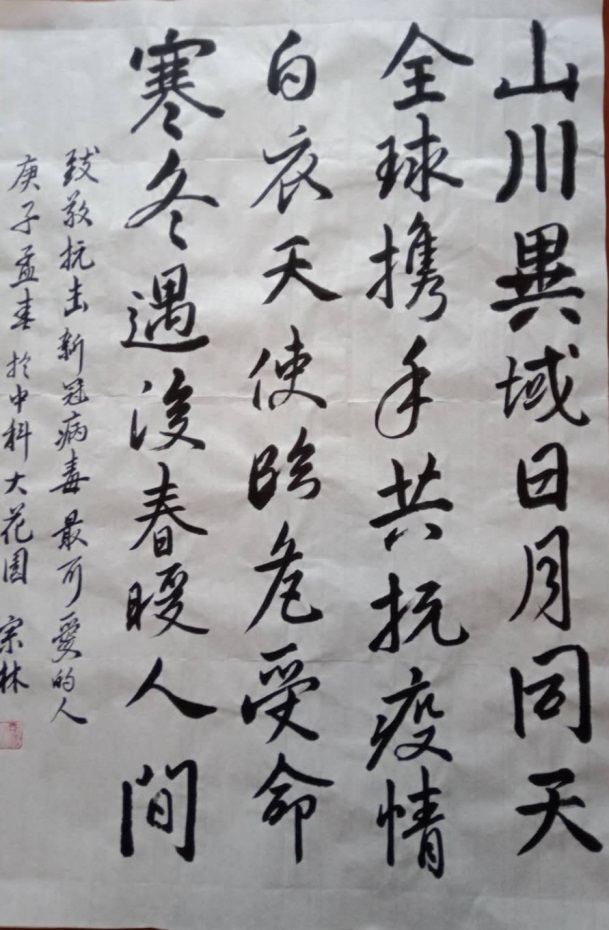 山川異域日月同天
全球携手共抗疫情
白衣天使临危受命
寒冬遇後春暖人間
致敬抗击新冠病毒最可爱的人
庚子孟春於中科大花園 宗林